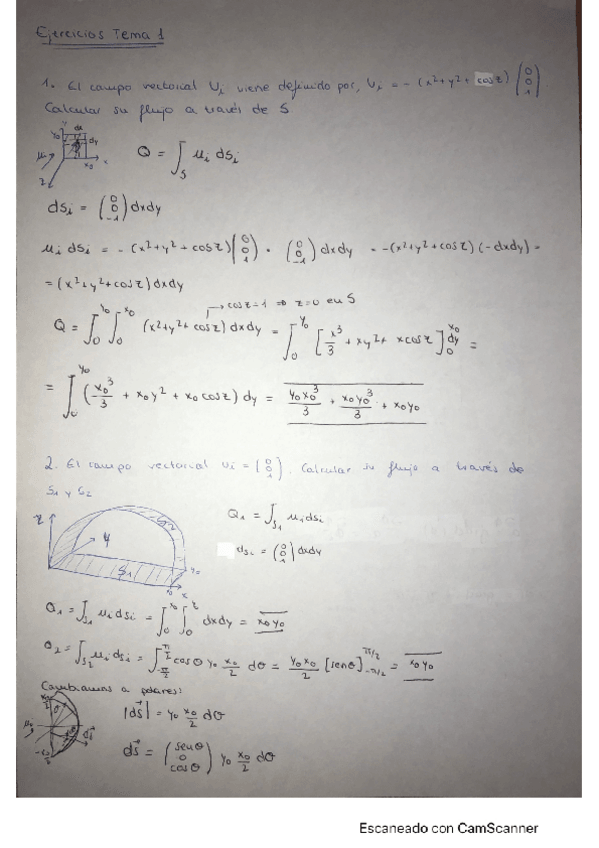 Ejercicios Tema 1
1. El campo vectorial Ui viene definido por, Ui = - (x²+y²+ cosz) (0 0 1)
Calcular su flujo a través de S
Q = ∫s ui dsi
dsi = (0 0 -1) dxdy
ui dsi = - (x²+y²+cosz) (0 0 1) · (0 0 -1) dxdy = -(x²+y²+cosz) (-dxdy) =
= (x²+y²+cosz) dxdy
→ cosz=1 ⇒ z=0 en S
Q = ∫₀^y₀ ∫₀^x₀ (x²+y²+ cosz) dxdy = ∫₀^y₀ [x³/3 + xy² + xcosz]₀^x₀ dy =
= ∫₀^y₀ (x₀³/3 + x₀y² + x₀cosz) dy = y₀x₀³/3 + x₀y₀³/3 + x₀y₀
2. El campo vectorial ui = (0 0 1). Calcular su flujo a través de
S1 y S2
Q₁ = ∫s₁ ui dsi
dsi = (0 0 1) dxdy
z
y
S2
S1
y₀
x
Q₁ = ∫s₁ ui dsi = ∫₀ ∫₀ dxdy = x₀y₀
Q₂ = ∫s₂ ui dsi = ∫_-π/2^π/2 cosθ y₀ x₀/2 dθ = y₀x₀/2 [senθ]_-π/2^π/2 = x₀y₀
Cambiamos a polares:
|ds| = y₀ x₀/2 dθ
ds = (senθ 0 cosθ) y₀ x₀/2 dθ
Escaneado con CamScanner